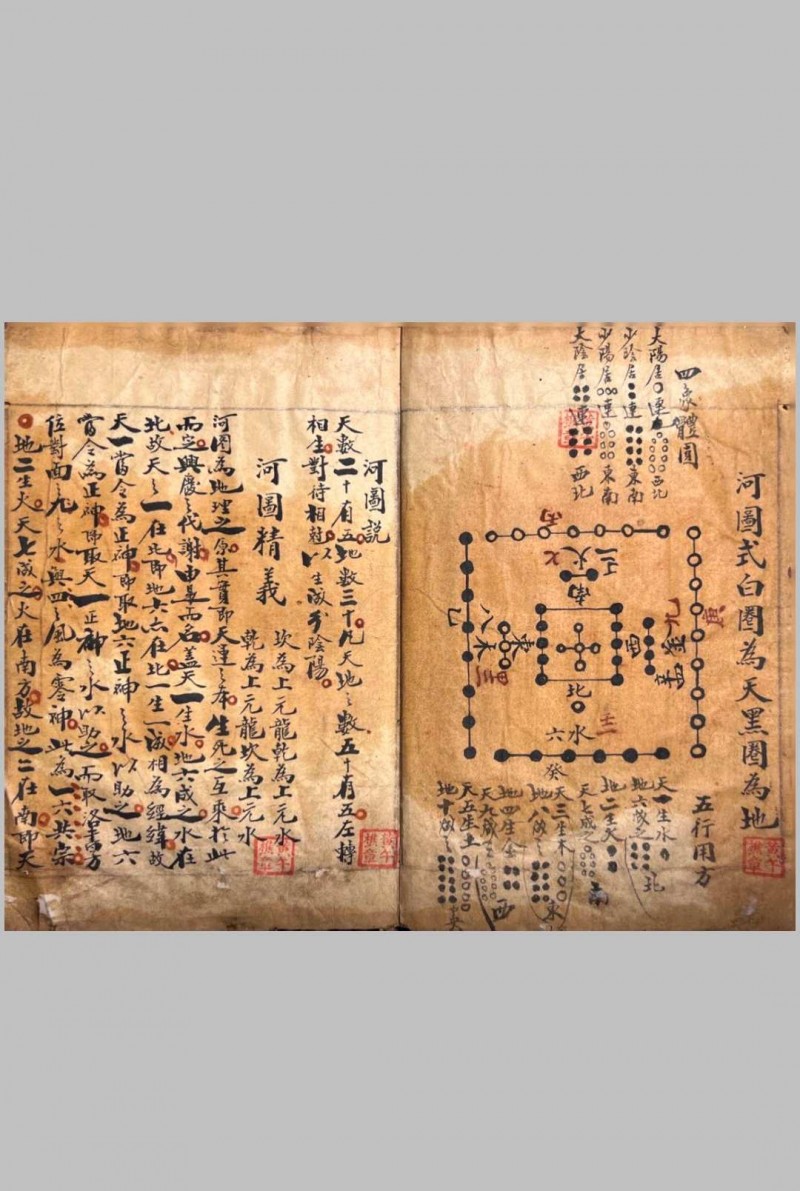 河圖式白圈為天黑圈為地
四象體圓
太陽居 連 西北
少陰居 連 東南
少陽居 連 東南
太陰居 連 西北
丙
七 火 二
南
庚
九 金 四
西
八 木 三
東
北
六水
壬
癸
五行用方
天一生水
地六成之 北
地二生火
天七成之 南
天三生木
地八成之 東
地四生金
天九成之 西
天五生土
地十成之
河圖說
天數二十有五地數三十凡天地之數五十有五左轉
相生對待相尅以生成分陰陽
河圖精義
坎為上元龍乾為上元水
乾為上元龍坎為上元水
河圖為地理之原其實即天運之本生死之互乘於此
而定興廢之代謝由是而名蓋天一生水地六成之水在
北故天之一在北即地六亦在北一生一成相為經緯故
天一當令為正神即取地六正神之水以助之地六
當令為正神即取天一正神之水以助之而取洛書方
位對面九之水與四之風為零神此為一六共宗
地二生火天七成之火在南方故地之二在南即天